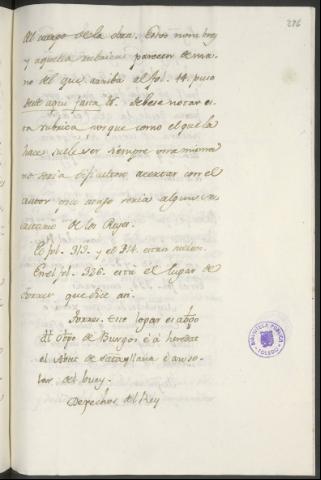 286
del cuerpo de la obra. Estos nombres
y aquella rubrica parecen de ma-
no del que arriba al fol. 44. puso
desde aqui falta. Debese notar es-
ta rubrica porque como el que la
hace suele ser siempre una misma
no seria dificultoso acertar con el
autor que acaso seria algun se-
cretario de los Reyes.
El fol. 313. y el 314. estan
En el fol. 326. está el lugar de
Torres que dice asi.
Torres. Este logar es abpo
del Obpo de Burgos é á heredat
el Abat de é an so-
lar del buey.
Derechos del Rey
BIBLIOTECA PUBLICA
TOLEDO